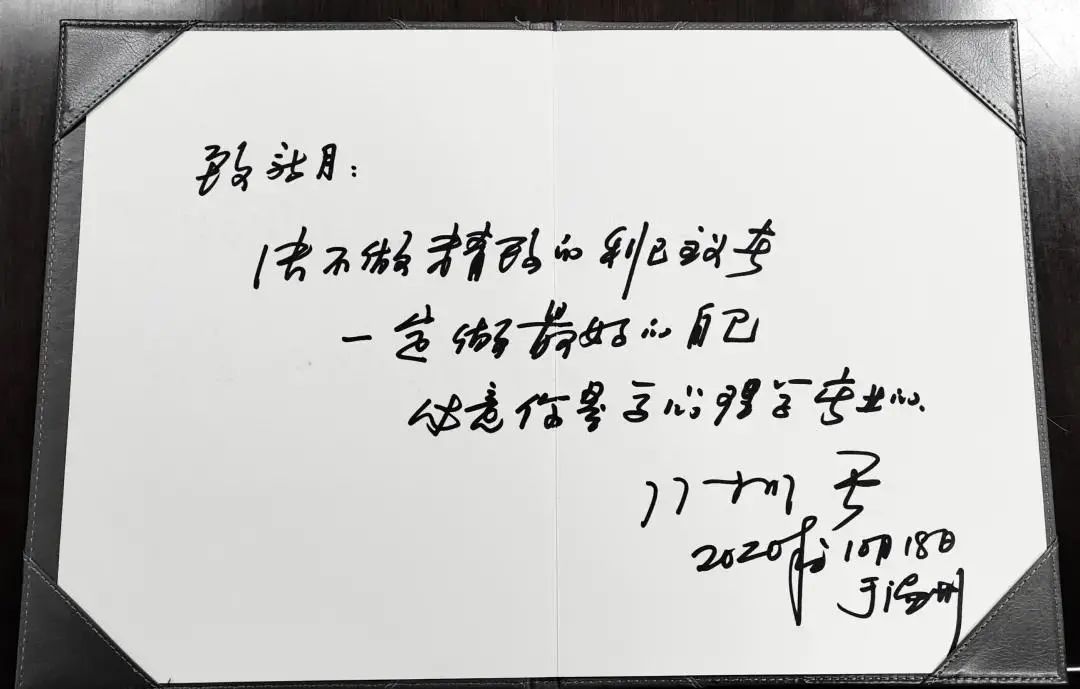 致新月：
决不做精致的利己主义者
一定做最好的自己
注意你是学心理学专业的.
2020年10月18日
于温州